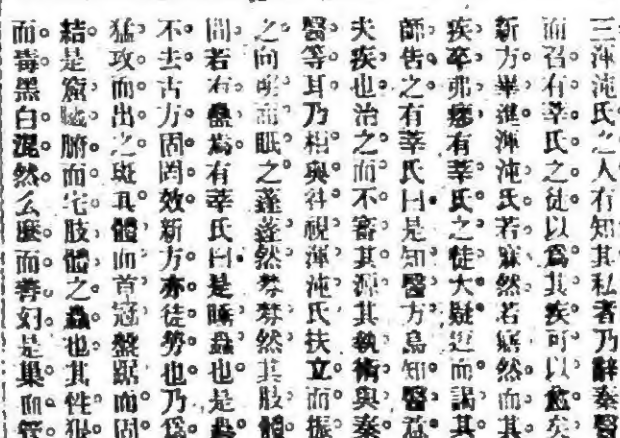 三渾沌氏之人有知其私者乃辭秦醫
而召有莘氏之徒以爲其疾可以愈。
新方畢進渾沌氏若寐然若寤然而其
疾卒弗瘳有莘氏之徒大疑而謁其
師告之有莘氏曰是知醫方烏知醫
夫疾也治之而不審其源其執術與秦
醫等耳乃相與視渾沌氏扶立而振
之向明而眠之蓬蓬然棼棼然其肢體
間若有蠱焉有莘氏曰是蟲也是
不去古方固罔效新方亦徒勞也乃爲
猛攻而出之斑其體而首冠盤踞而固
結是窟臟腑而宅肢體之蟲也其性狠
而毒黑白混然么麼而幻是巢而